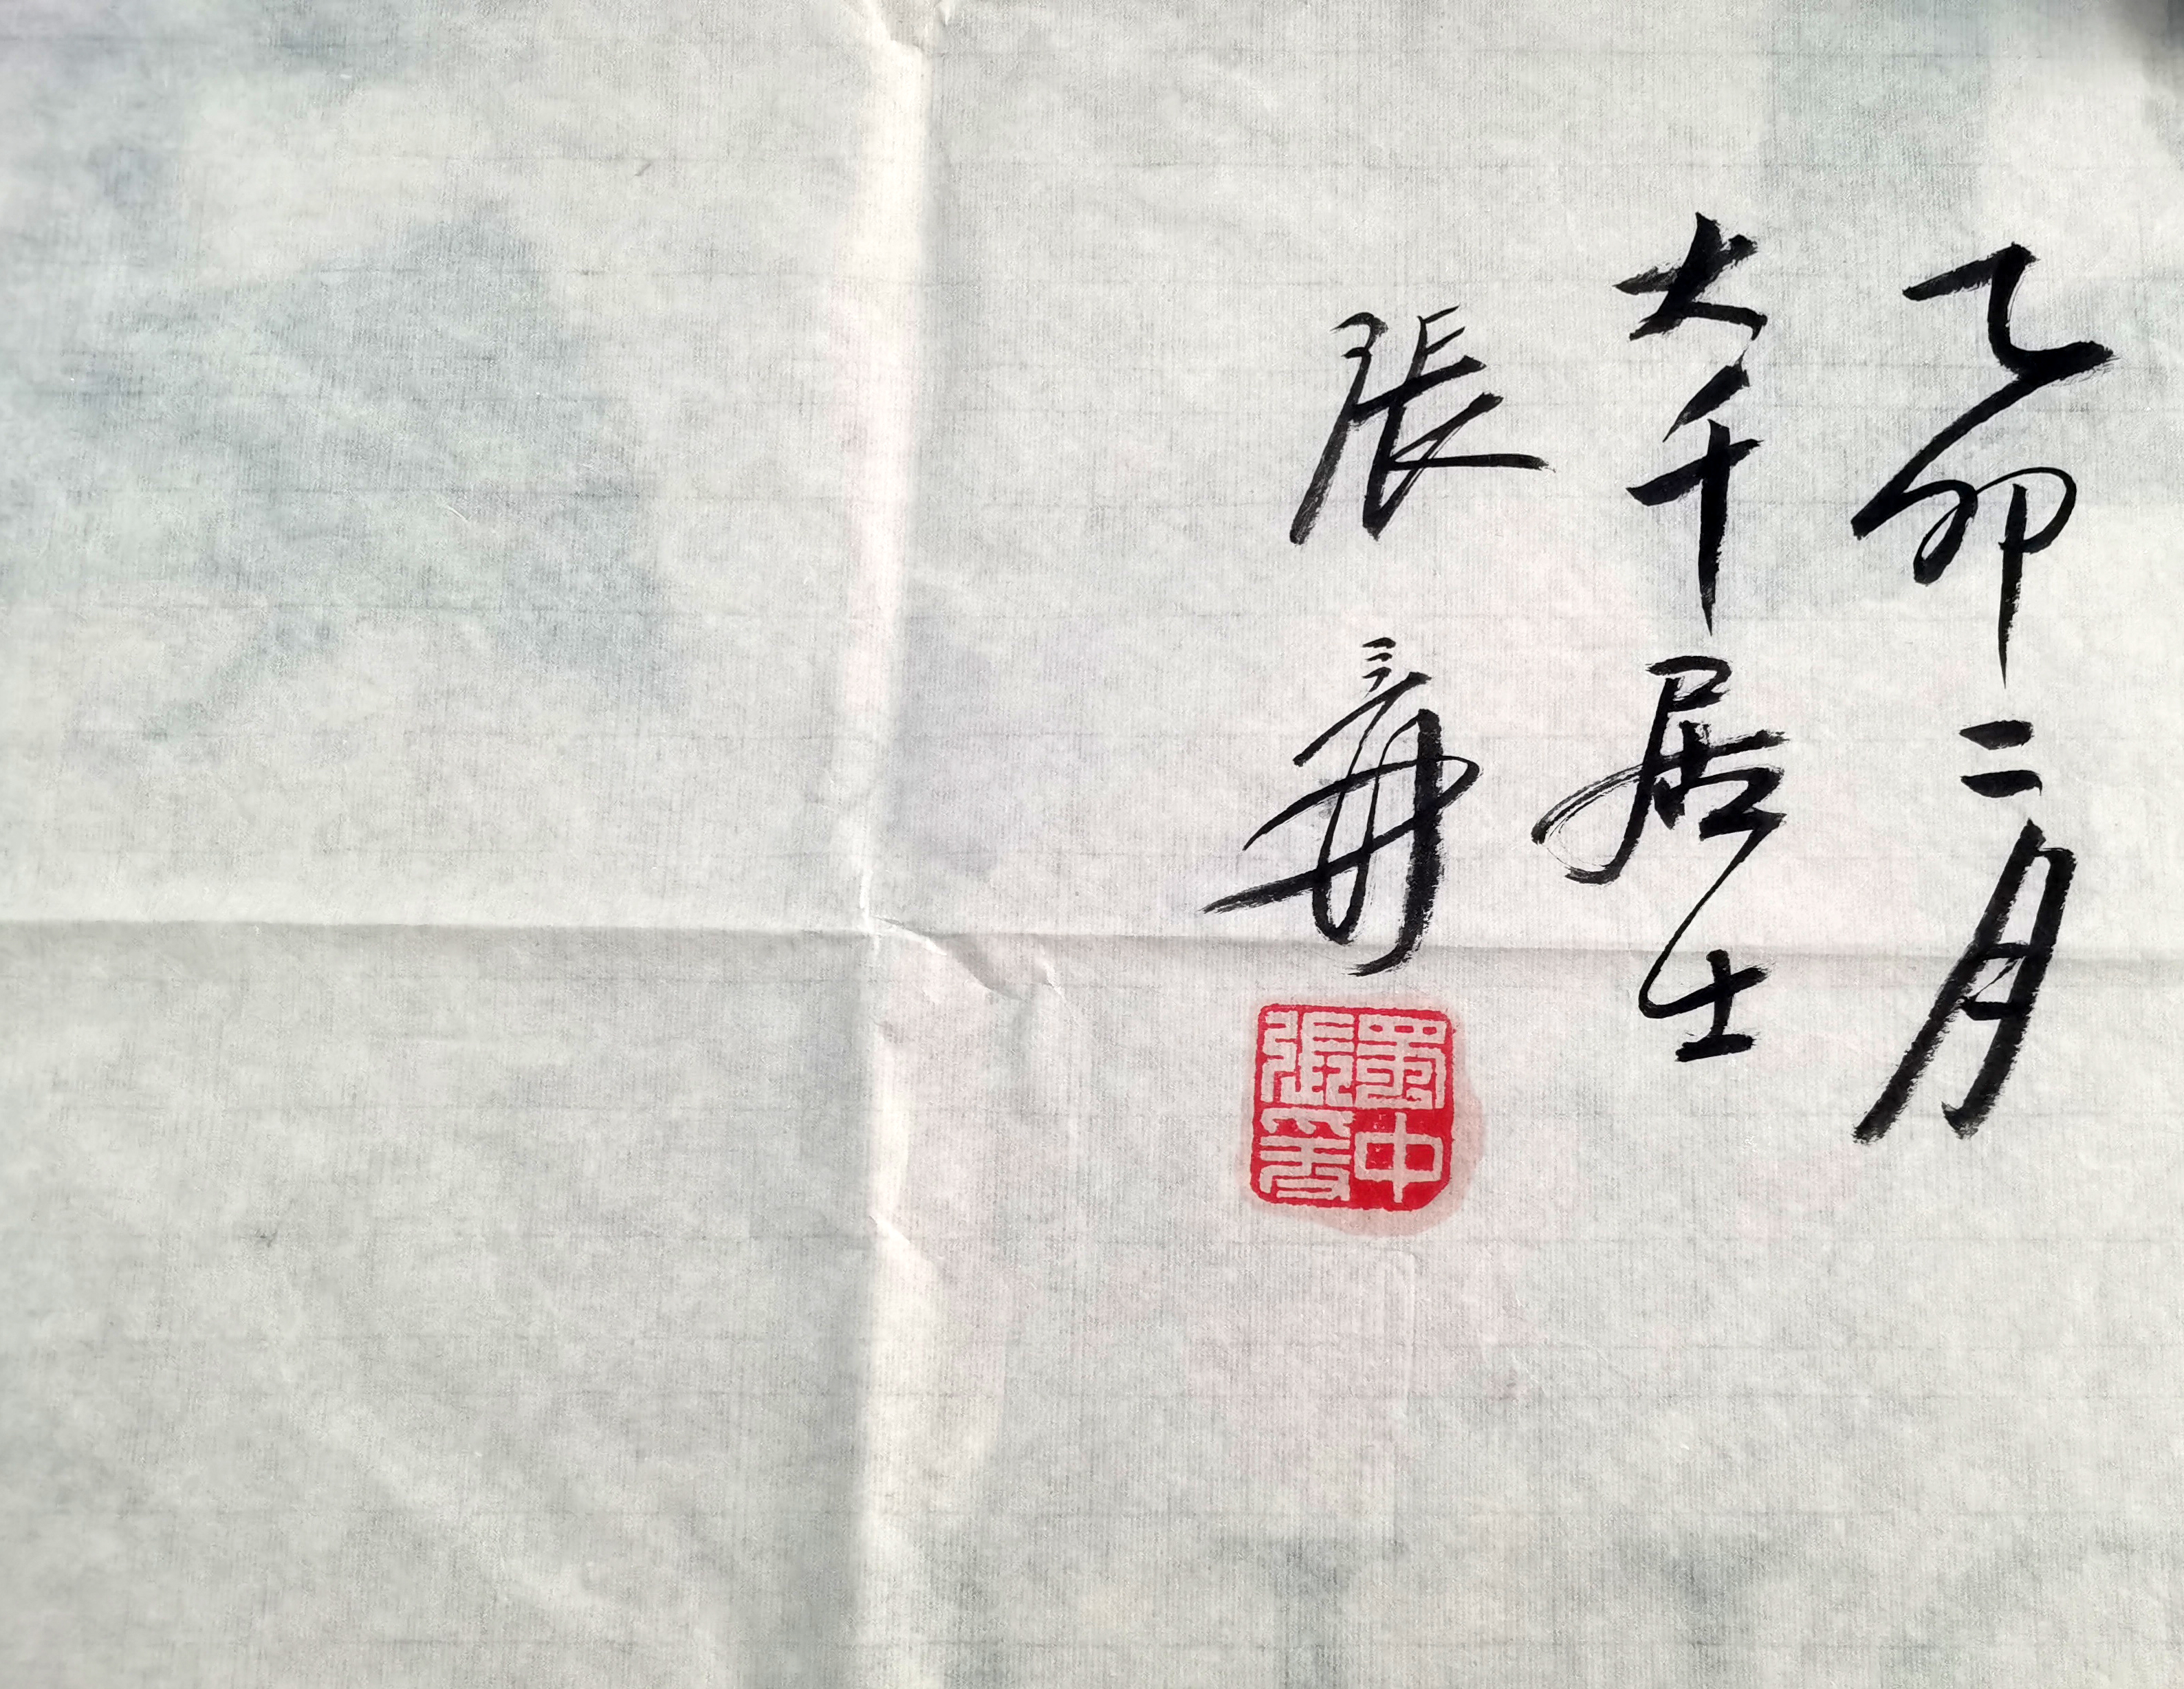 乙卯二月
大千居士
張爰
蜀中
張爰